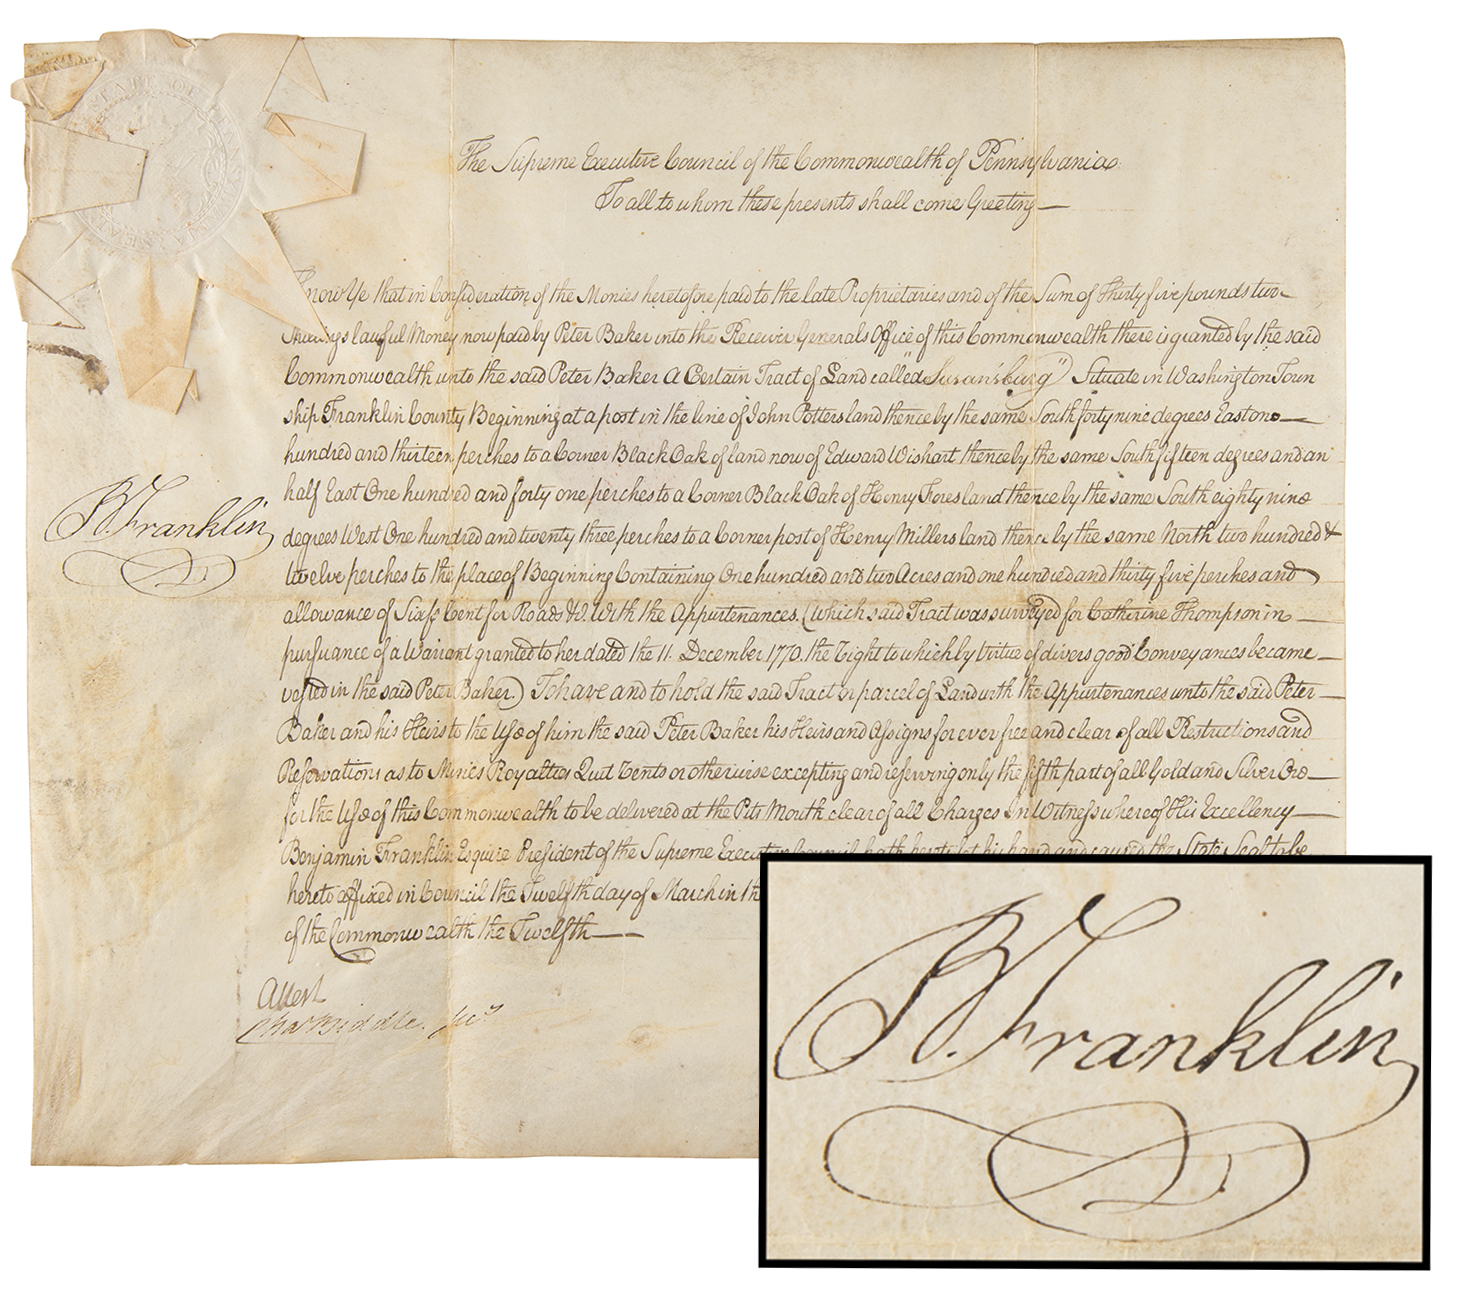 STATE OF PENNSYLVANIA
The Supreme Executive Council of the Commonwealth of Pennsylvania
To all to whom these presents shall come Greeting
Know Ye that in Consideration of the Monies heretofore paid to the late Proprietaries and of the Sum of Thirty five pounds two
Shillings lawful Money now paid by Peter Baker into the Receiver Generals Office of this Commonwealth there is granted by the said
Commonwealth unto the said Peter Baker A Certain Tract of Land called "Susansburg" Situate in Washington Town
ship Franklin County Beginning at a post in the line of John Potters land thence by the same South forty nine degrees East one
hundred and thirteen perches to a Corner Black Oak of land now of Edward Wishart thence by the same South fifteen degrees and an
half East One hundred and forty one perches to a Corner Black Oak of Henry Fores land thence by the same South eighty nine
degrees West One hundred and twenty three perches to a Corner post of Henry Millers land thence by the same North two hundred &
twelve perches to the place of Beginning Containing One hundred and two Acres and one hundred and thirty five perches and
allowance of Six ⅌ Cent for Roads &c. With the Appurtenances. (which said Tract was surveyed for Catherine Thompson in
pursuance of a Warrant granted to her dated the 11. December 1770. the Right to which by virtue of divers good Conveyances became
vested in the said Peter Baker.) To have and to hold the said Tract or parcel of Land with the Appurtenances unto the said Peter
Baker and his Heirs to the Use of him the said Peter Baker his Heirs and Assigns for ever free and clear of all Restrictions and
Reservations as to Mines Royalties Quit Rents or otherwise excepting and reserving only the fifth part of all Gold and Silver Ore
for the Use of this Commonwealth to be delivered at the Pits Mouth clear of all Charges In Witness whereof His Excellency
Benjamin Franklin Esquire President of the Supreme Executive Council hath hereto set his hand and caused the State Seal to be
hereto affixed in Council the Twelfth day of March in th
of the Commonwealth the Twelfth
B. Franklin
Attest
Cha Biddle. Secy
B. Franklin